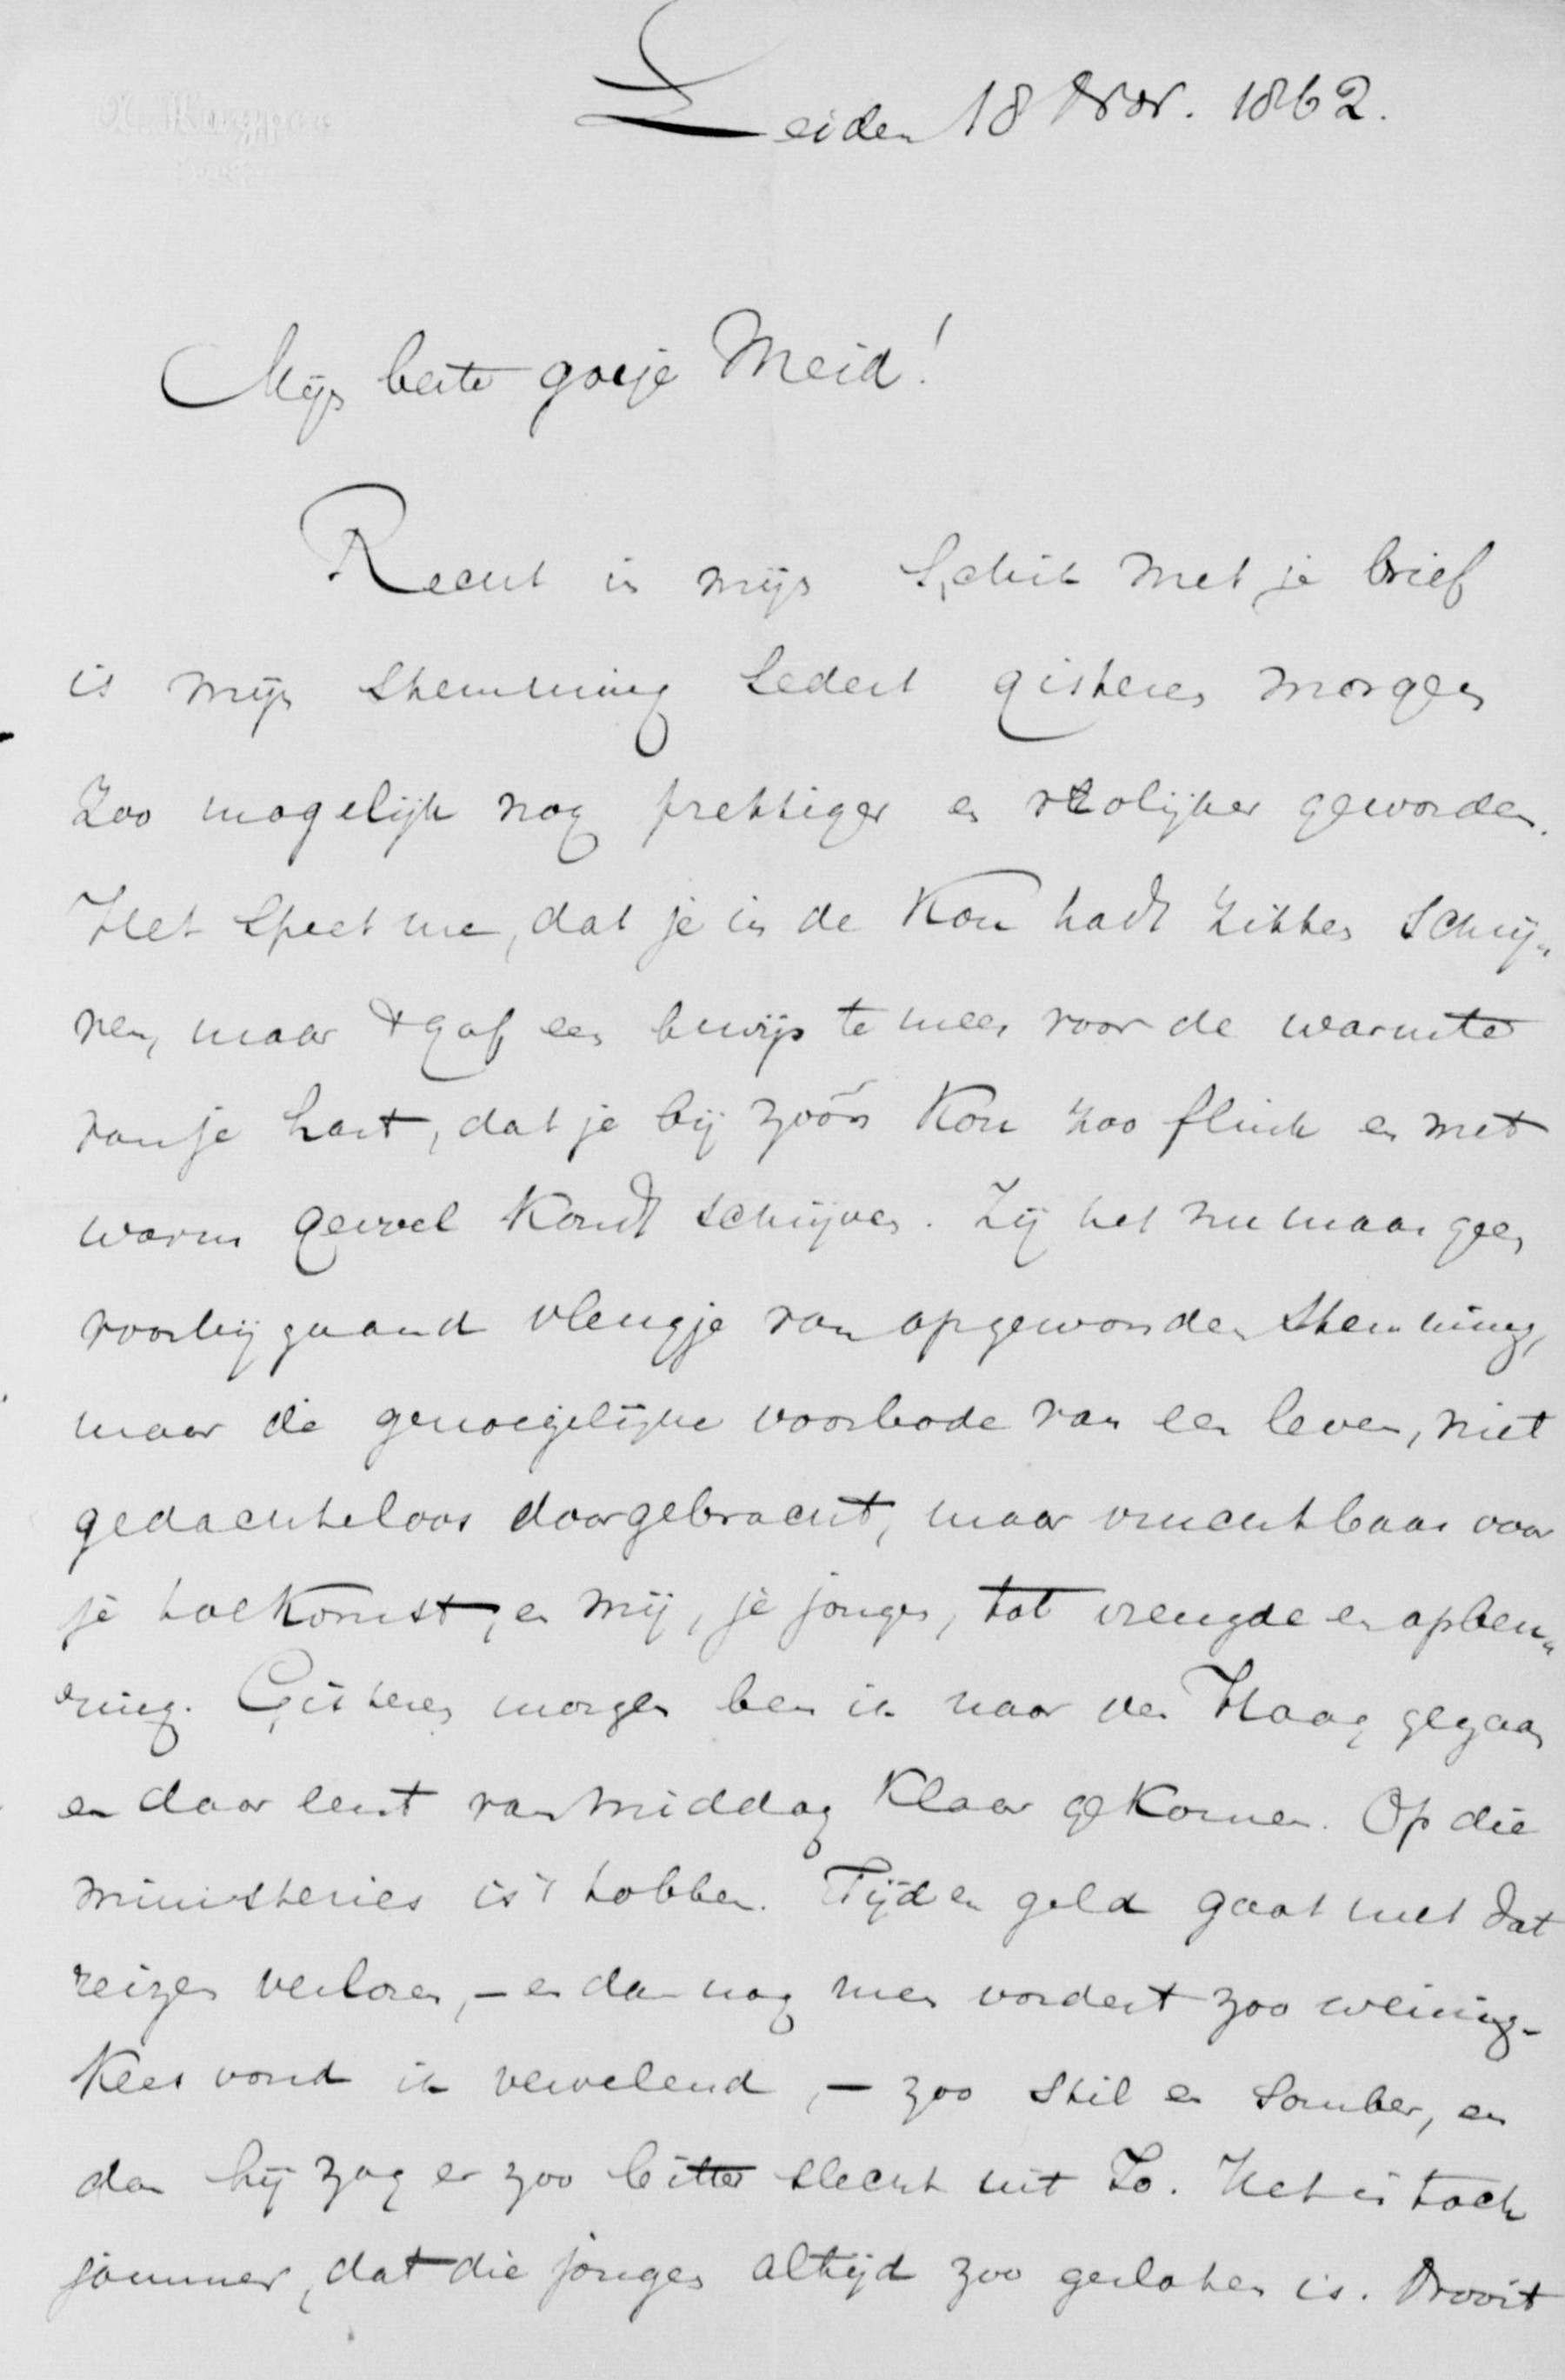 Leiden 18 Nov. 1862.
Mijn beste goeje Meid!
Recht in mijn schik met je brief
is mijn stemming sedert gisteren morgen
zoo mogelijk nog prettiger en vrolijker geworden.
Het speet me, dat je in de kou hadt zitten schrij„
ven, maar 't gaf een bewijs te meer voor de warmte
van je hart, dat je bij zóón kou zoo flink en met
warm gevoel kondt schrijven. Zij het nu maar geen
voorbijgaand vleugje van opgewonden stemming,
maar de genoegelijke voorbode van een leven, niet
gedachteloos doorgebracht, maar vruchtbaar voor
je toekomst, en mij, je jongen, tot vreugde en opbeu„
ring. Gisteren morgen ben ik naar den Haag gegaan
en daar eerst van middag klaar gekomen. Op die
ministeries is 't tobben. Tijd en geld gaat met dat
reizen verloren, – en dan nog men vordert zoo weinig –
Kees vond ik vervelend, – zoo stil en somber, en
dan hij zag er zoo bitter slecht uit Zo. Het is toch
jammer, dat die jongen altijd zoo gesloten is. Nooit